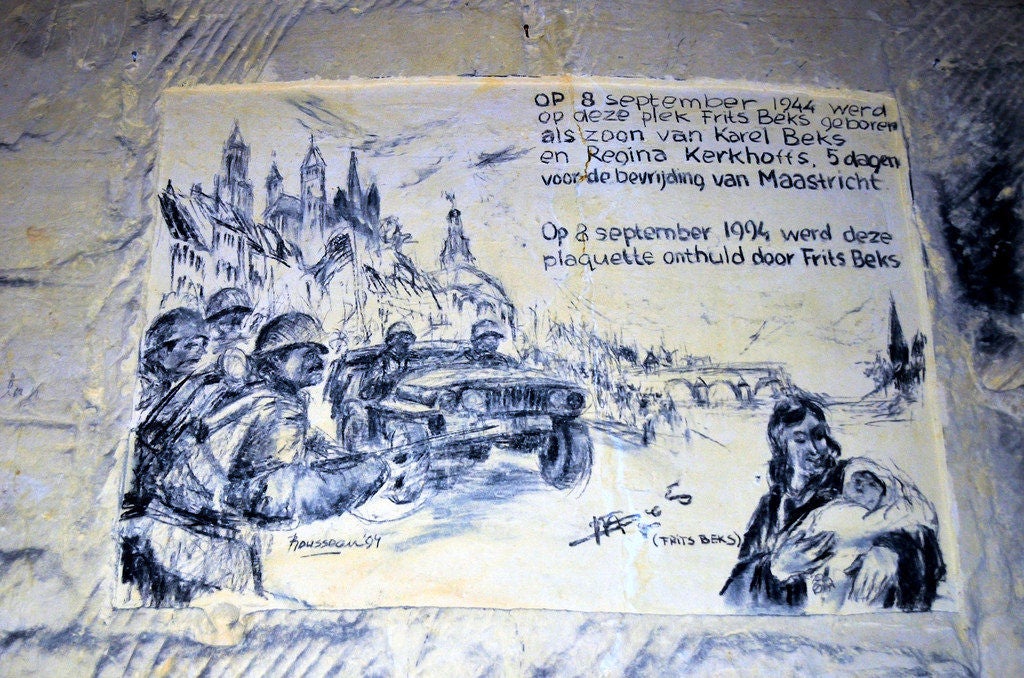 OP 8 september 1944 werd
op deze plek Frits Beks geboren
als zoon van Karel Beks
en Regina Kerkhoffs, 5 dagen
voor de bevrijding van Maastricht
Op 8 september 1994 werd deze
plaquette onthuld door Frits Beks
Rousseau '94
(FRITS BEKS)